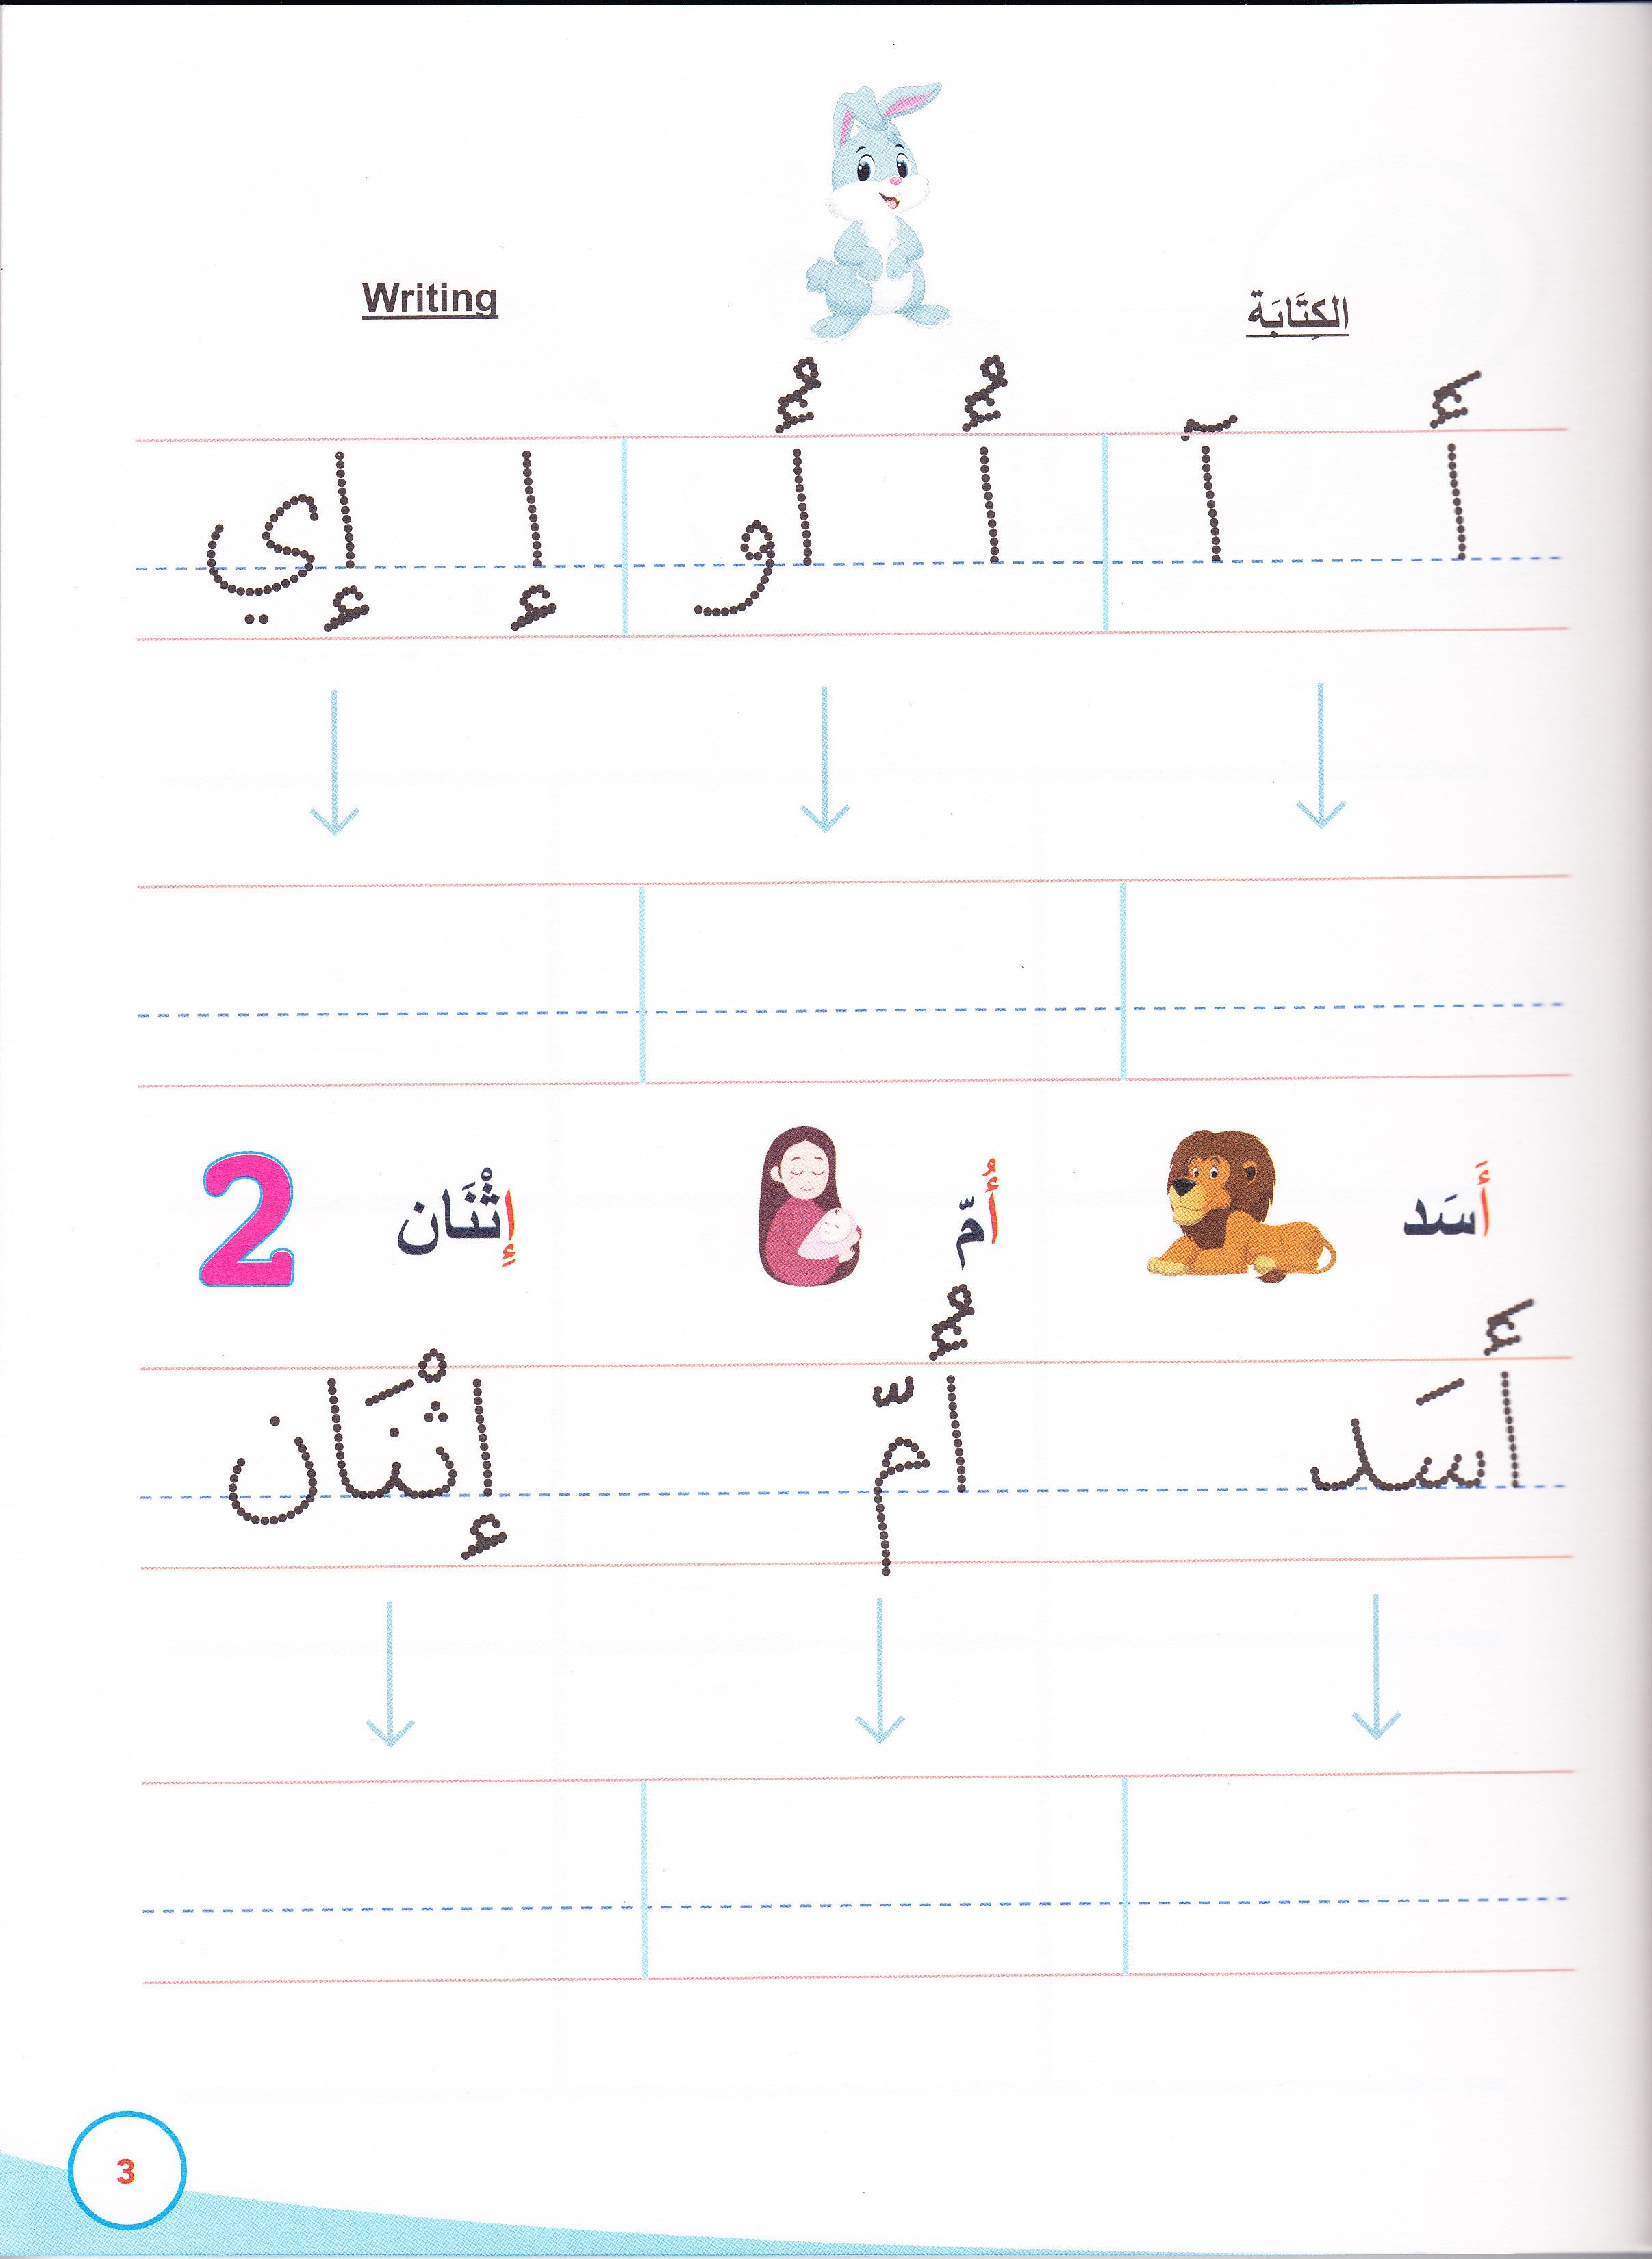 الكِتَابَة Writing
أَ آ أُ أُو إ إي
أَسَد أُمّ إِثْنَان 2
أَسَد أُمّ إثْنَان
3